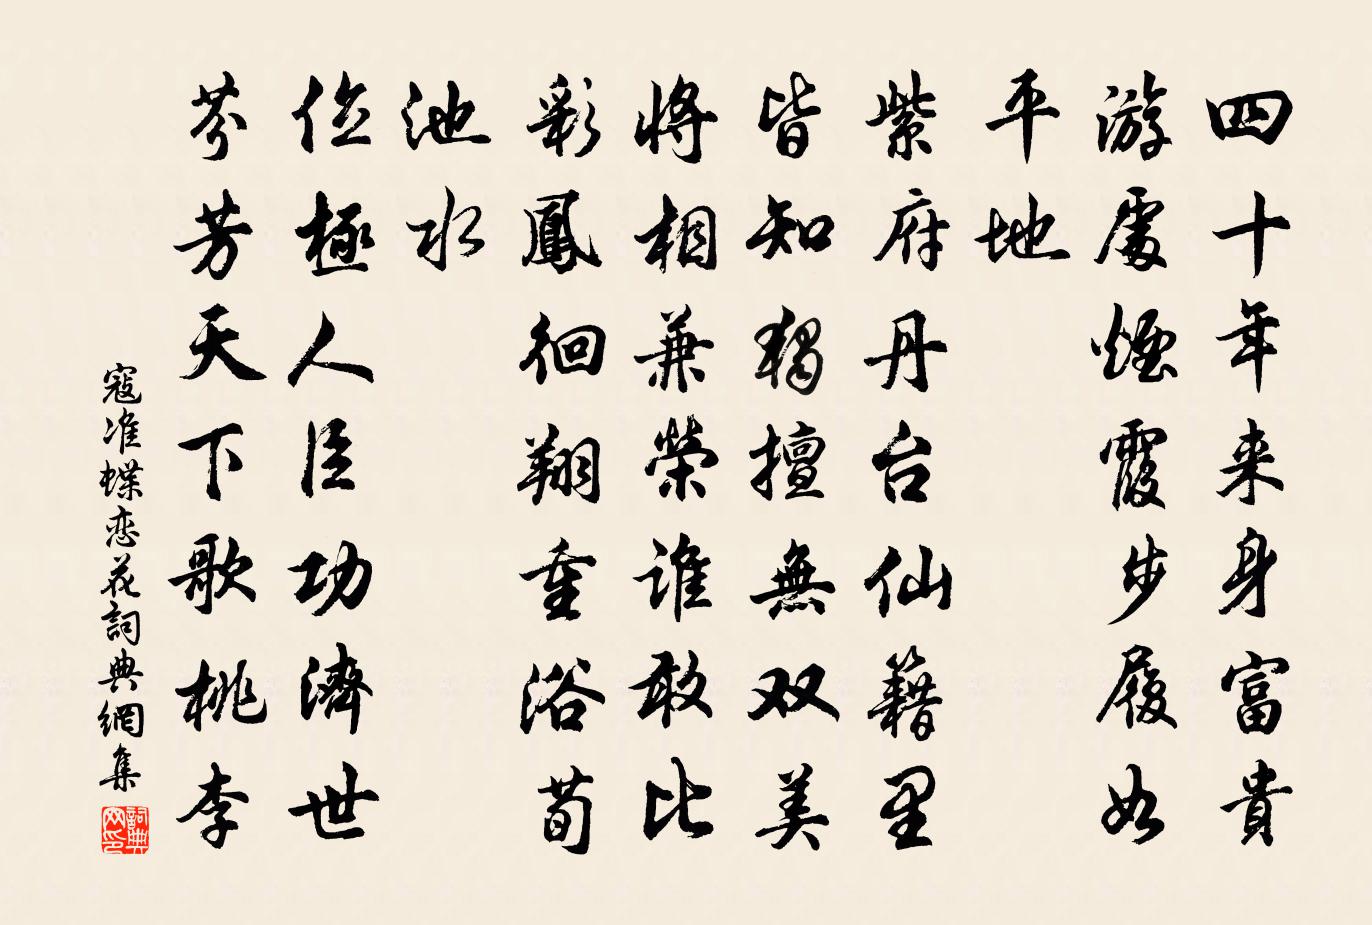 四十年来身富貴
游處煙霞步履如
平地
紫府丹台仙籍里
皆知獨擅無双美
將相兼榮誰敢比
彩鳳徊翔重浴荀
池水
位極人臣功濟世
芬芳天下歌桃李
寇准蝶恋花詞典網集
詞典
网印